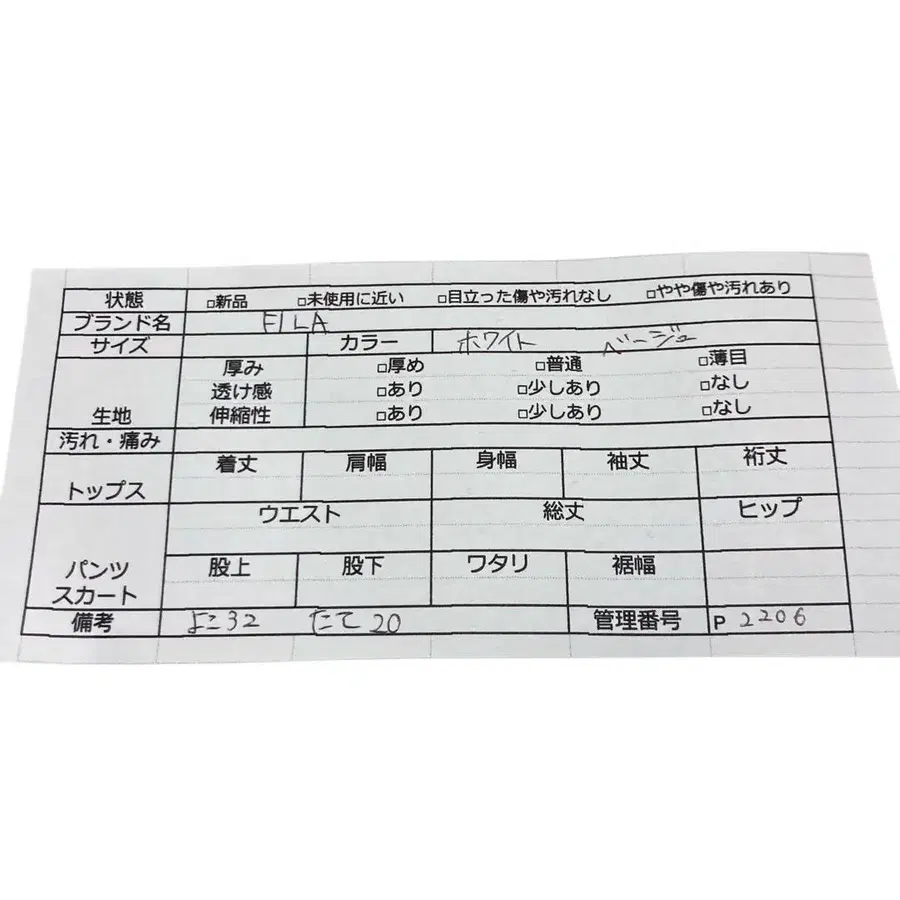 状態 □新品 □未使用に近い □目立った傷や汚れなし □やや傷や汚れあり
ブランド名 FILA
サイズ カラー ホワイト ベージュ
厚み □厚め □普通 □薄目
透け感 □あり □少しあり □なし
生地 伸縮性 □あり □少しあり □なし
汚れ・痛み
着丈 肩幅 身幅 袖丈 裄丈
トップス
ウエスト 総丈 ヒップ
股上 股下 ワタリ 裾幅
パンツ
スカート
備考 よこ32 たて20 管理番号 P 2206